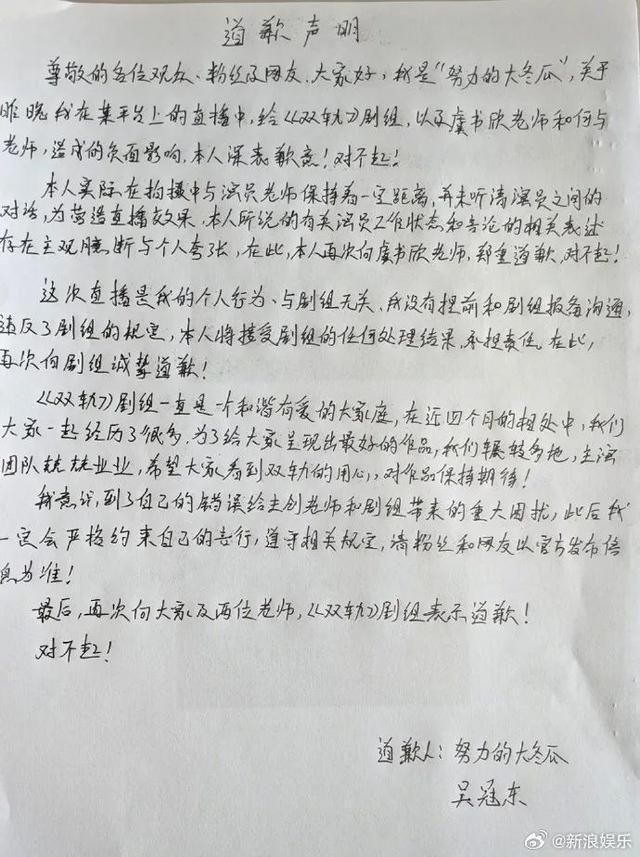 道歉声明
尊敬的各位观众、粉丝及网友、大家好,我是“努力的大冬瓜”,关于
昨晚我在某平台上的直播中,给《双轨》剧组,以及虞书欣老师和何与
老师,造成的负面影响,本人深表歉意!对不起!
本人实际在拍摄中与演员老师保持着一定距离,并未听清演员之间的
对话,为营造直播效果,本人所说的有关演员工作状态和言论的相关表述
存在主观臆断与个人夸张,在此,本人再次向虞书欣老师,郑重道歉,对不起!
这次直播是我的个人行为、与剧组无关、我没有提前和剧组报备沟通,
违反了剧组的规定,本人将接受剧组的任何处理结果,承担责任。在此,
再次向剧组诚挚道歉!
《双轨》剧组一直是一个和谐有爱的大家庭,在近四个月的相处中,我们
大家一起经历了很多,为了给大家呈现出最好的作品,我们辗转多地,主演
团队兢兢业业,希望大家看到双轨的用心,对作品保持期待!
我意识到了自己的错误给主创老师和剧组带来的重大困扰,此后我
一定会严格约束自己的言行,遵守相关规定,请粉丝和网友以官方发布信
息为准!
最后,再次向大家及两位老师,《双轨》剧组表示道歉!
对不起!
道歉人:努力的大冬瓜
吴冠东
@新浪娱乐